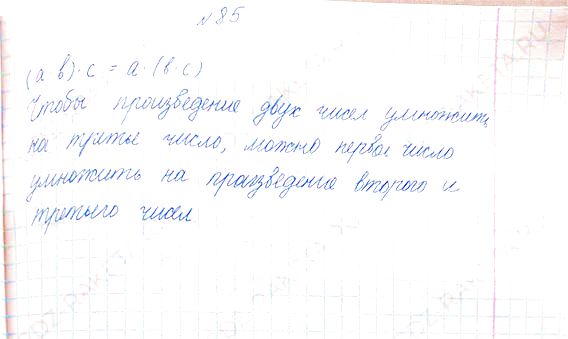 №85
(а в)·с = а·(в·с)
Чтобы произведение двух чисел умножить
на третье число, можно первое число
умножить на произведение второго и
третьего чисел